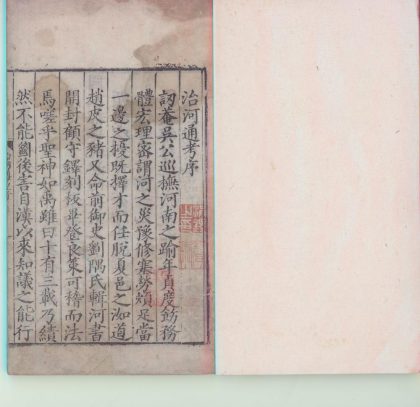 治河通考序
訒菴吳公巡撫河南之踰年貞度飭務
體宏理密謂河之災豫修塞勞頗足當
一邊之投既擇才而任脫夏邑之洳道
趙皮之豬又命前御史劉隅氏輯河書
開封顧守鐸刻板平登良策可稽而法
焉嗟乎聖神如禹雖曰十有三載乃績
然不能劉後告自漢以來知議之能行